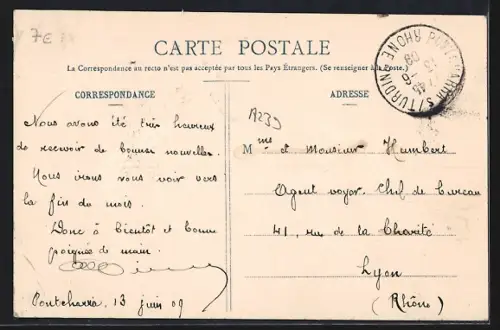 7E
CARTE POSTALE
La Correspondance au recto n'est pas acceptée par tous les Pays Étrangers. (Se renseigner à la Poste.)
PONTCHARRA S/TURDINE RHONE
13
09
CORRESPONDANCE
Nous avons été très heureux
de recevoir de bonnes nouvelles.
Nous irons vous voir vers
la fin du mois.
Donc à bientôt et bonne
poignée de main.
Pontcharra, 13 juin 09
ADRESSE
A239
Mme et Monsieur Humbert
Agent voyer. Chef de bureau
41, rue de la Charité
Lyon
(Rhône)